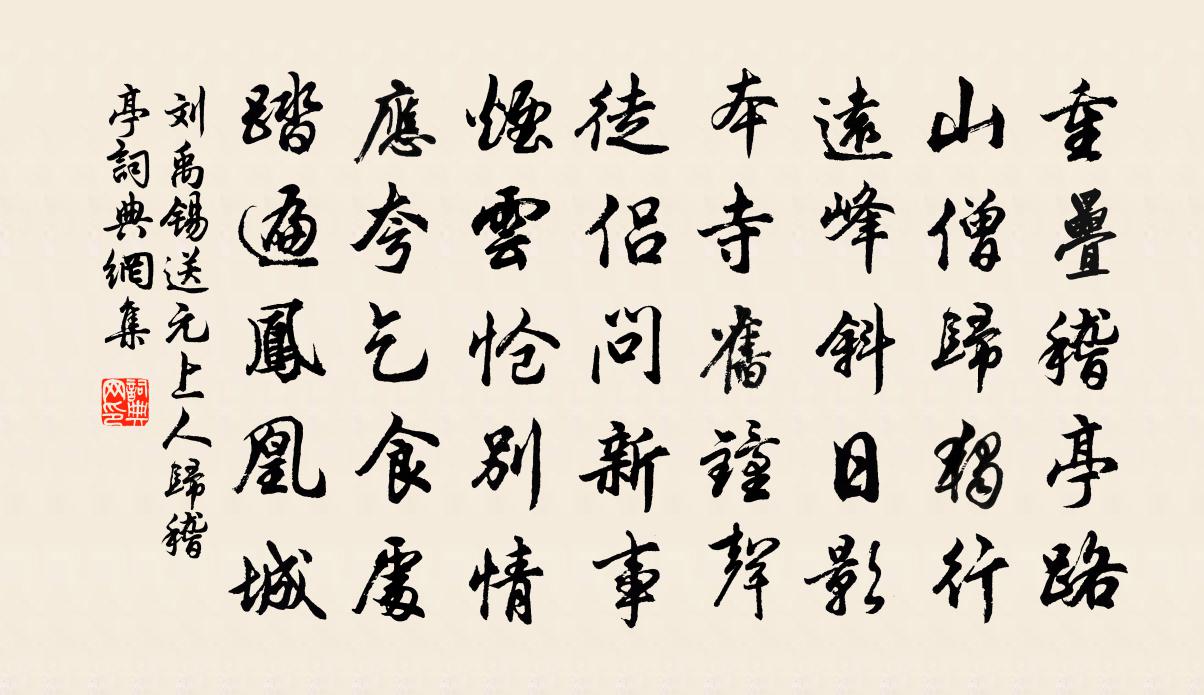 重疊稽亭路
山僧歸獨行
遠峰斜日影
本寺舊鐘聲
徒侶問新事
煙雲愴別情
應夸乞食處
踏遍鳳凰城
刘禹錫送元上人歸稽
亭詞典網集
詞典
网印